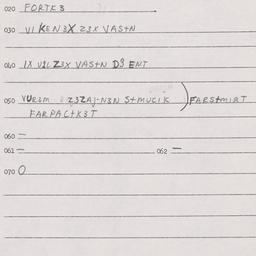 020 FORTK3
030 VIKEN3X Z3X VASTN
040 IX V2LZ3X VASTN D9 ENT
050 VUR3M Z3ZAJ-N3N STMUCIK ) FARSTMIRT
FARPACTK3T
060 —
061 — 062 —
070 O